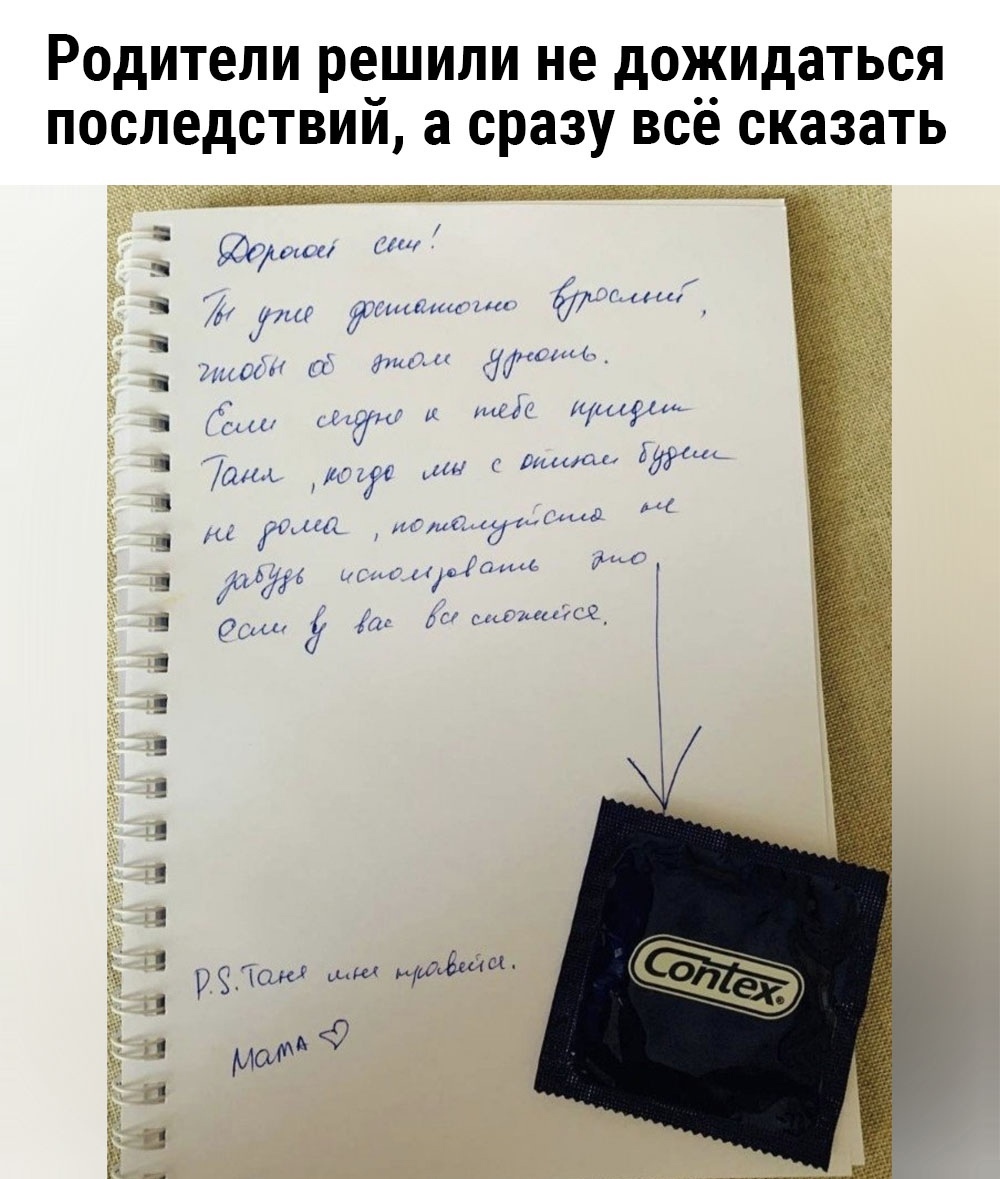 Родители решили не дожидаться
последствий, а сразу всё сказать
Дорогой сын!
Ты уже достаточно взрослый,
чтобы об этом узнать.
Если сегодня к тебе придет
Таня, когда мы с отцом будем
не дома, пожалуйста не
забудь использовать это
если у вас все сложится.
P.S. Таня мне нравится.
Мама
Contex